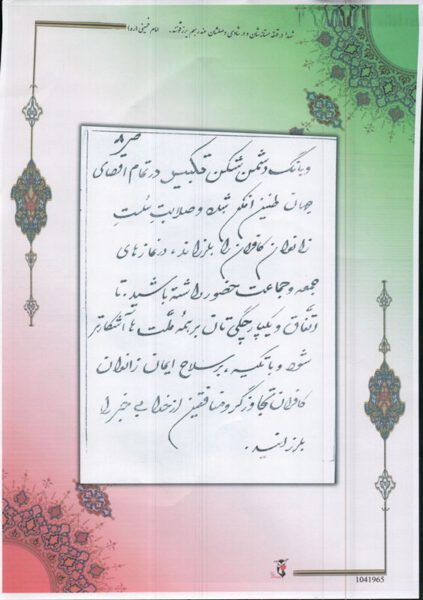 شهدا در قهقهه مستانه‌شان و در شادی وصولشان عند ربهم یرزقونند. امام خمینی (ره)
ص ۸
و بانگ دشمن شکن تکبیر در تمام اقصای
جهان طنین افکن شده و صلابتِ سُمتِ
زانوان کافران را بلرزاند، در نمازهای
جمعه و جماعت حضور داشته باشید. تا
اتفاق و یکپارچگی‌تان بر همهٔ ملّت‌ها آشکارتر
شود و با تکیه بر سلاح ایمان زانوان
کافران تجاوزگر و منافقین از خدا بی‌خبر را
بلرزانید.
1041965